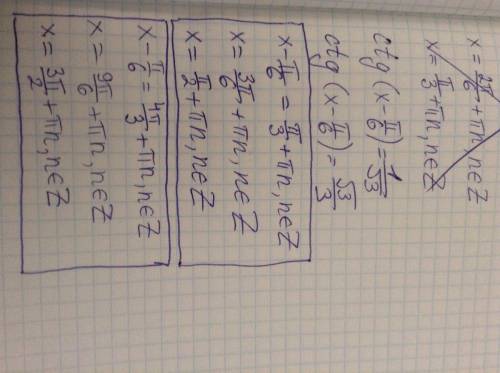 x = 2π/6 + πn, n∈Z
x = π/3 + πn, n∈Z
ctg (x - π/6) = 1/√3
ctg (x - π/6) = √3/3
x - π/6 = π/3 + πn, n∈Z
x = 3π/6 + πn, n∈Z
x = π/2 + πn, n∈Z
x - π/6 = 4π/3 + πn, n∈Z
x = 9π/6 + πn, n∈Z
x = 3π/2 + πn, n∈Z